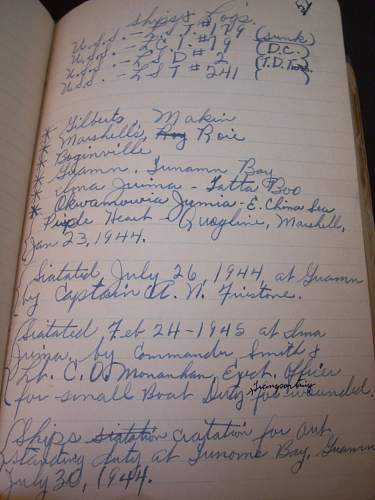 Ships & Logs.
U.S.S. - L.S.T. #179 (sunk)
U.S.S. - L.C.T. #79 (D.C.)
U.S.S. - L S D # 2
U.S.S. - L S T # 241 ( )
* Gilberts, Makin
* Marshells, Roie
* Boginville
* Guamn, Tunamn Bay
* Ima Juima - Tatta Boo
* Okwamowia Jumia - E. China Sea
* Purple Heart - Quoghline, Marshell,
Jan 23, 1944.
Siatated July 26, 1944, at Guamn
by Captain A. N. Firstone.
Siatated Feb 24-1945 at Ima
Juma, by Commander Smith &
Lt. C. O. Monanhan, Exect. Officer
for small Boat Duty for wounded.
Ships siatation ciatation for out
standing duty at Tunome Bay, Guamn
July 30, 1944.